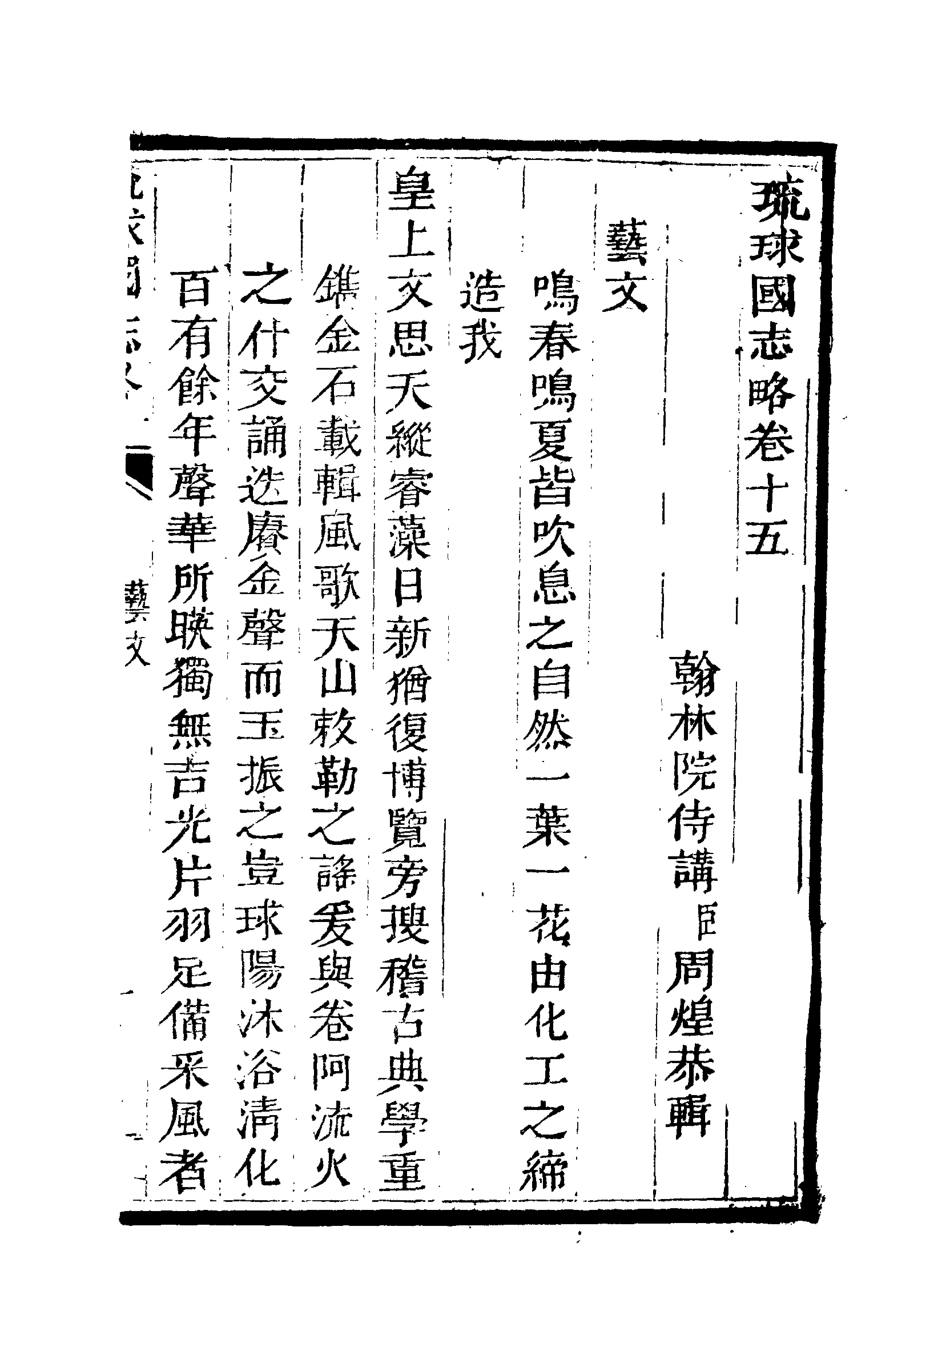 琉球國志略卷十五
翰林院侍講臣周煌恭輯
藝文
鳴春鳴夏皆吹息之自然一葉一花由化工之締
造我
皇上文思天縱睿藻日新猶復博覽旁搜稽古典學重
鐫金石載輯風歌天山敕勒之謠爰與卷阿流火
之什交誦迭賡金聲而玉振之豈球陽沐浴淸化
百有餘年聲華所暎獨無吉光片羽足備采風者
琉球國志略
藝文